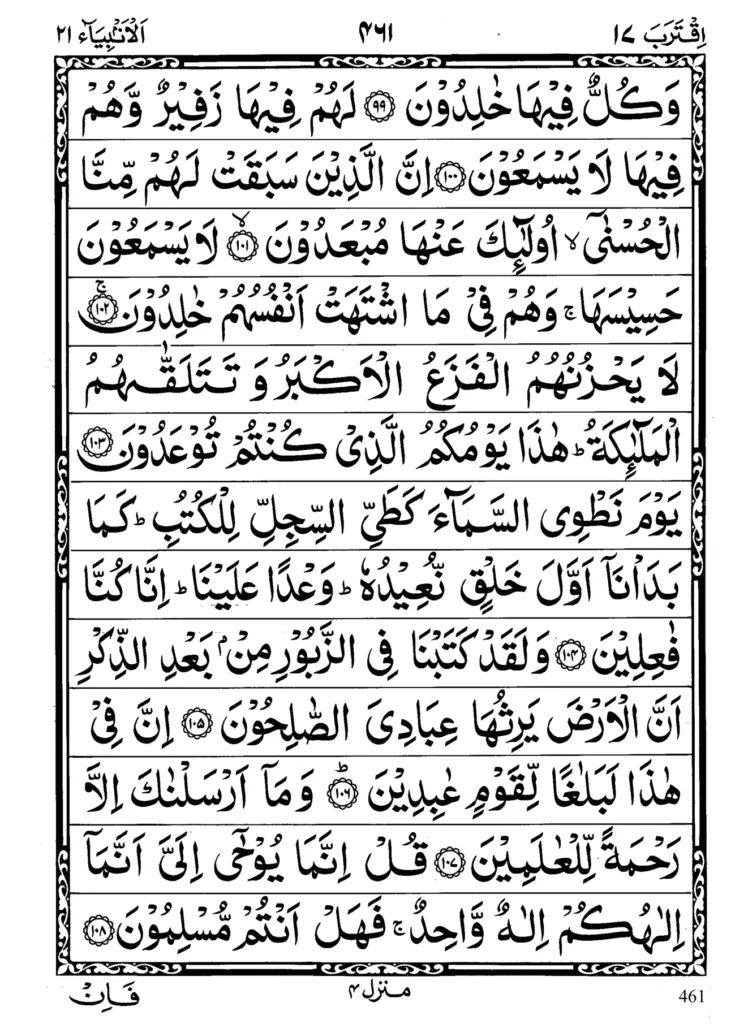 اِقْتَرَبَ ١٧ ٤٦١ اَلْاَنْۢبِيَآء ٢١
وَكُلٌّ فِيْهَا خٰلِدُوْنَ ﴿٩٩﴾ لَهُمْ فِيْهَا زَفِيْرٌ وَّهُمْ
فِيْهَا لَا يَسْمَعُوْنَ ﴿١٠٠﴾ اِنَّ الَّذِيْنَ سَبَقَتْ لَهُمْ مِّنَّا
الْحُسْنٰٓى ۙ اُولٰٓئِكَ عَنْهَا مُبْعَدُوْنَ ﴿١٠١﴾ۙ لَا يَسْمَعُوْنَ
حَسِيْسَهَا ۚ وَهُمْ فِيْ مَا اشْتَهَتْ اَنْفُسُهُمْ خٰلِدُوْنَ ﴿١٠٢﴾ۚ
لَا يَحْزُنُهُمُ الْفَزَعُ الْاَكْبَرُ وَ تَتَلَقّٰىهُمُ
الْمَلٰٓئِكَةُ ؕ هٰذَا يَوْمُكُمُ الَّذِيْ كُنْتُمْ تُوْعَدُوْنَ ﴿١٠٣﴾
يَوْمَ نَطْوِى السَّمَآءَ كَطَيِّ السِّجِلِّ لِلْكُتُبِ ؕ كَمَا
بَدَاْنَآ اَوَّلَ خَلْقٍ نُّعِيْدُهٗ ؕ وَعْدًا عَلَيْنَا ؕ اِنَّا كُنَّا
فٰعِلِيْنَ ﴿١٠٤﴾ وَلَقَدْ كَتَبْنَا فِى الزَّبُوْرِ مِنْۢ بَعْدِ الذِّكْرِ
اَنَّ الْاَرْضَ يَرِثُهَا عِبَادِيَ الصّٰلِحُوْنَ ﴿١٠٥﴾ اِنَّ فِيْ
هٰذَا لَبَلٰغًا لِّقَوْمٍ عٰبِدِيْنَ ﴿١٠٦﴾ؕ وَمَآ اَرْسَلْنٰكَ اِلَّا
رَحْمَةً لِّلْعٰلَمِيْنَ ﴿١٠٧﴾ قُلْ اِنَّمَا يُوْحٰٓى اِلَيَّ اَنَّمَآ
اِلٰهُكُمْ اِلٰهٌ وَّاحِدٌ ۚ فَهَلْ اَنْتُمْ مُّسْلِمُوْنَ ﴿١٠٨﴾
461 منزل ٤ فَاِنْ